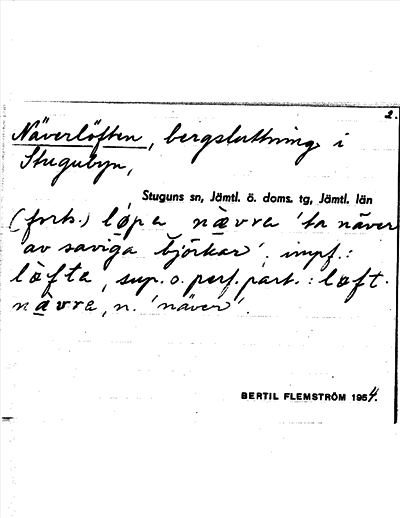 2.
Näverlöften, bergsluttning i
Stugubyn,
Stuguns sn, Jämtl. ö. doms. tg, Jämtl. län
(forts.) løpa nævra 'ta näver
av saviga björkar'. impf.:
løfta, sup. o. perf. part.: løft.
nævra, n. 'näver'.
BERTIL FLEMSTRÖM 1964.